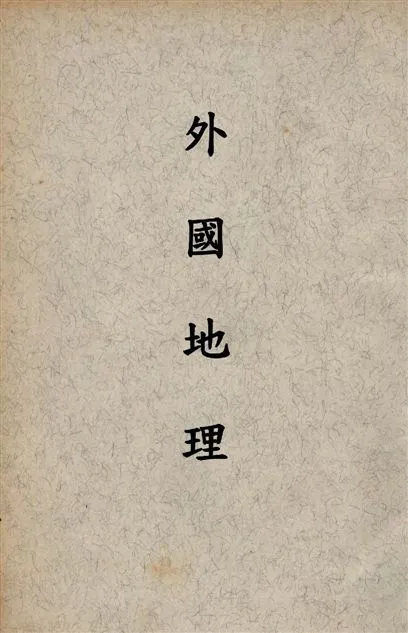 外國地理